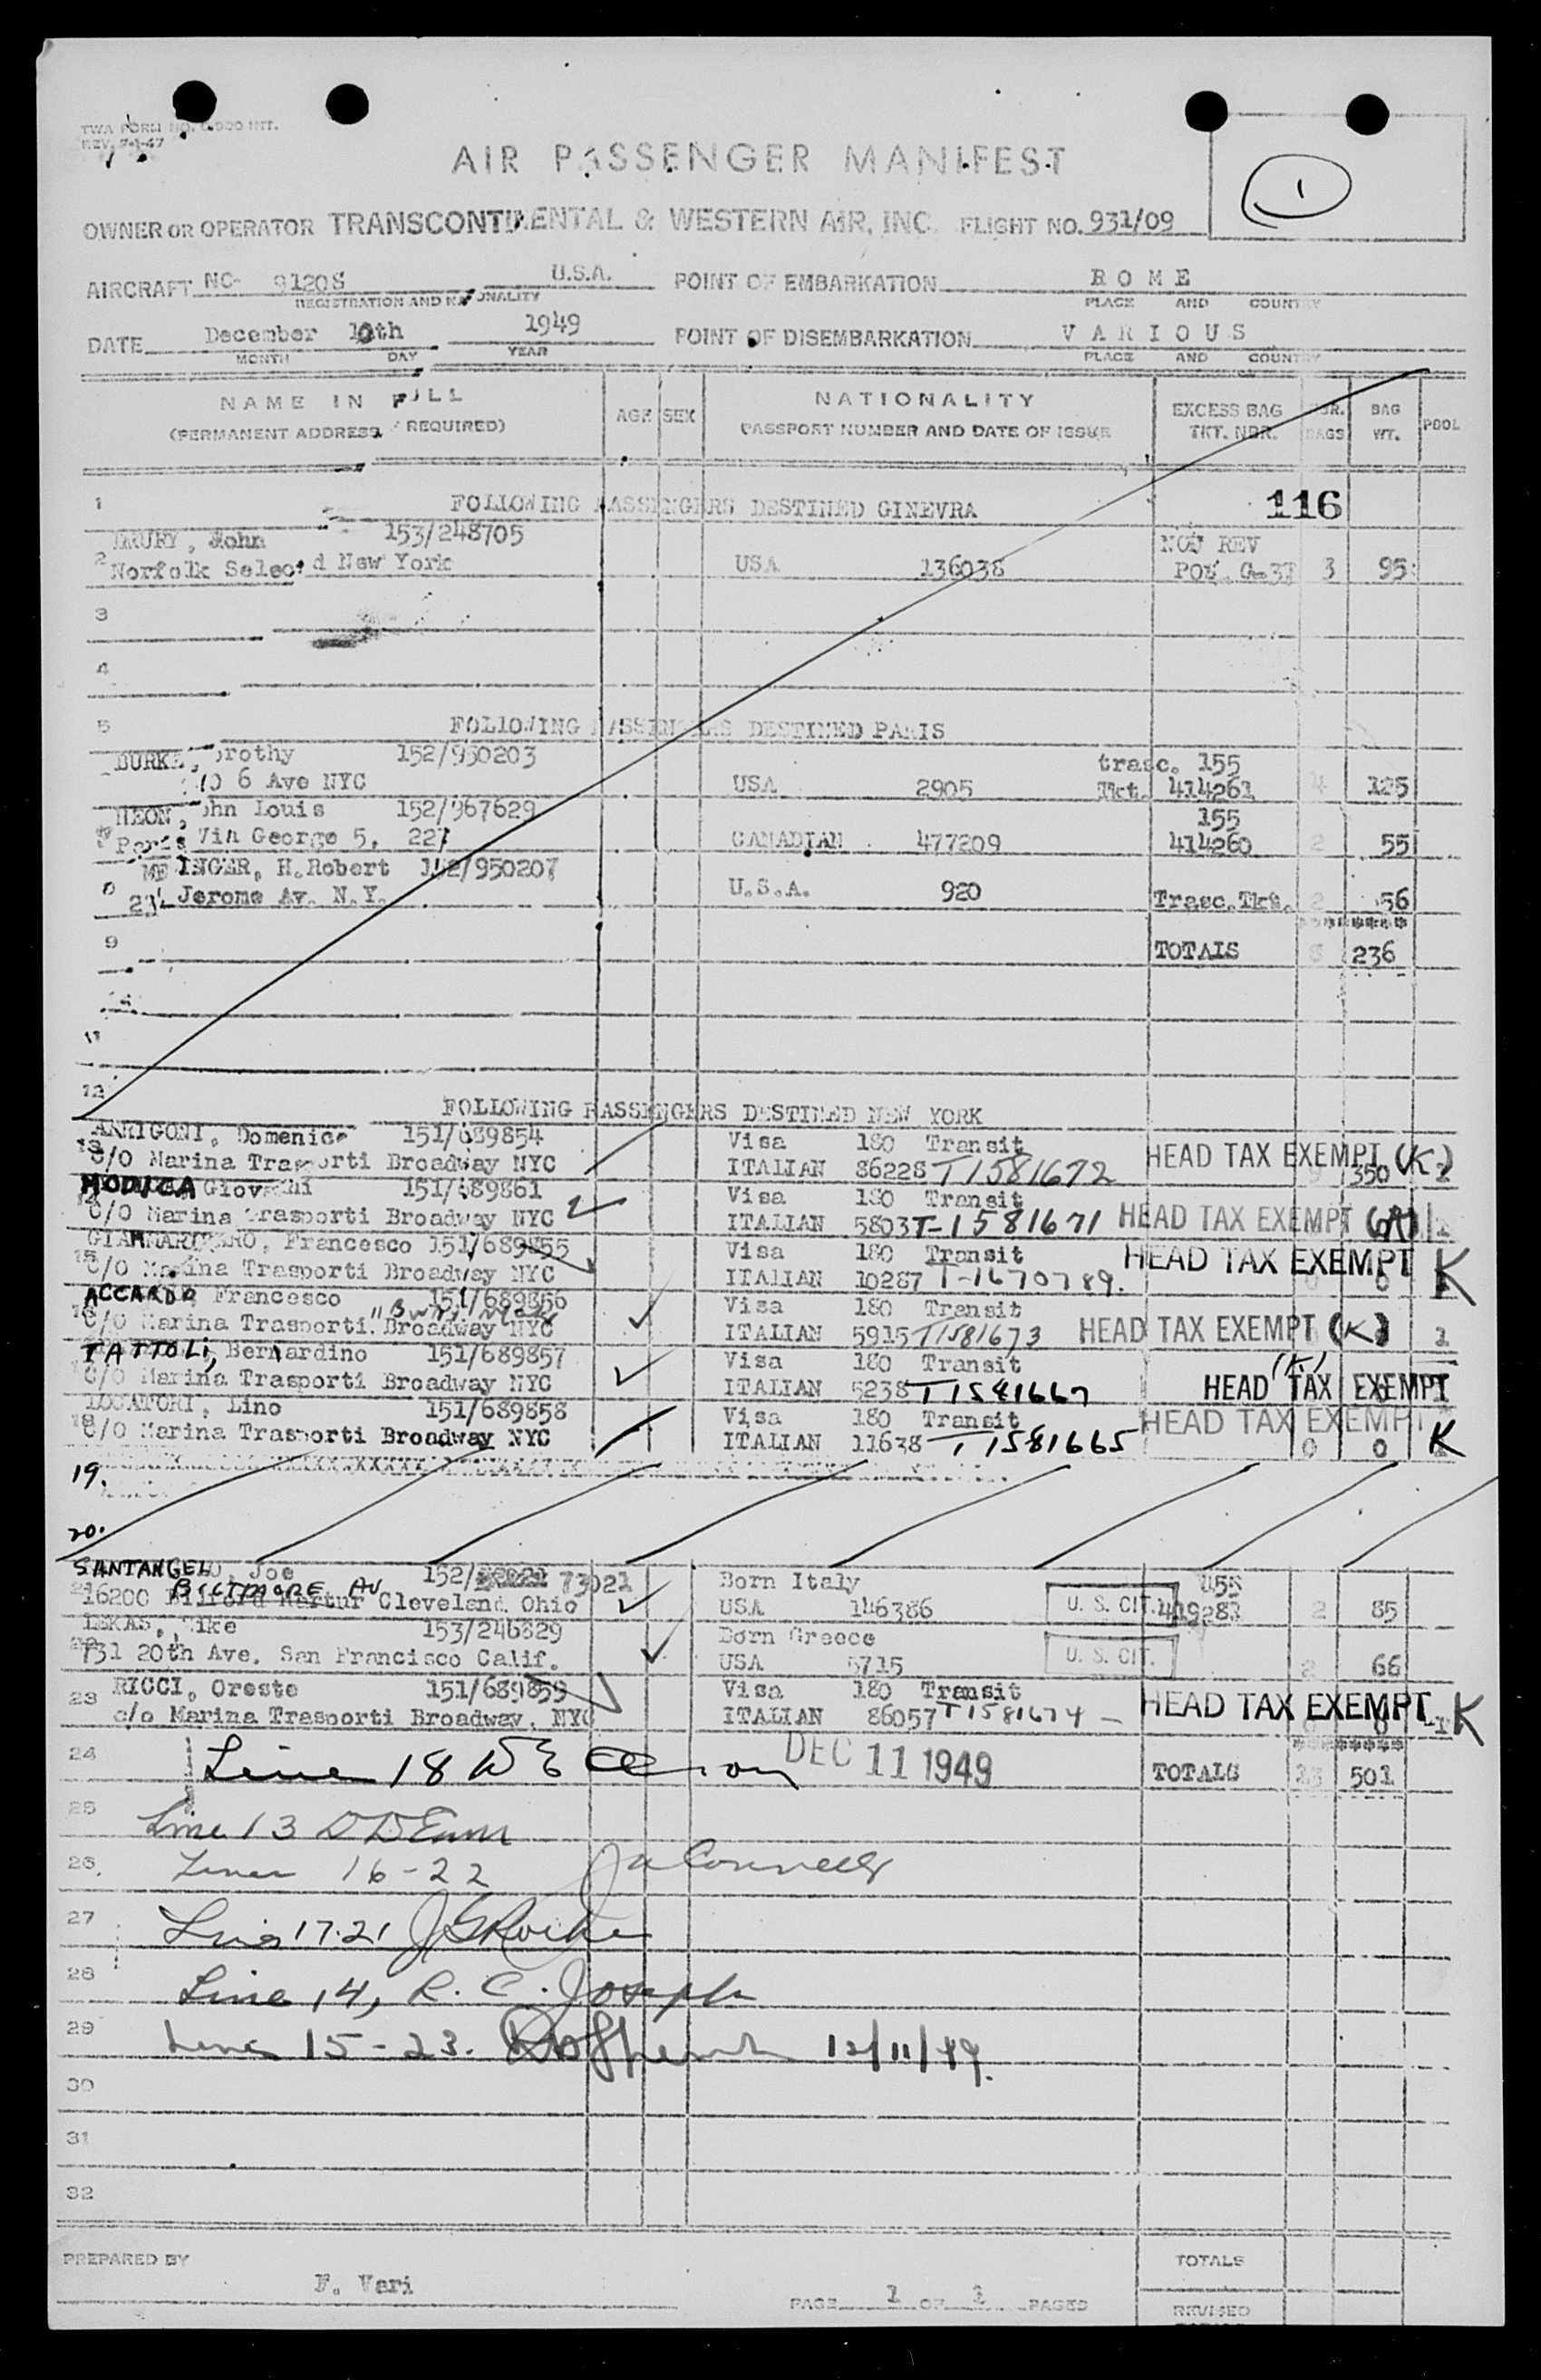 TWA FORM NO.
REV. 7-1-47
AIR PASSENGER MANIFEST
1
OWNER OR OPERATOR TRANSCONTINENTAL & WESTERN AIR, INC. FLIGHT NO. 931/09
AIRCRAFT NC- 91208 U.S.A. POINT OF EMBARKATION ROME
REGISTRATION AND NATIONALITY PLACE AND COUNTRY
DATE December 10th 1949 POINT OF DISEMBARKATION VARIOUS
MONTH DAY YEAR PLACE AND COUNTRY
NAME IN FULL AGE SEX NATIONALITY EXCESS BAG NBR. BAG POOL
(PERMANENT ADDRESS REQUIRED) PASSPORT NUMBER AND DATE OF ISSUE TKT. NBR. BAGS WT.
1 FOLLOWING PASSENGERS DESTINED GINEVRA 116
DRURY, John 153/248705 NON REV
2 Norfolk New York USA 136038 POS. G-37 3 95
3
4
5 FOLLOWING PASSENGERS DESTINED PARIS
BURKE, Dorothy 152/950203 trasc. 155
6 Ave NYC USA 2905 Tkt. 414261 4 125
HEON, John Louis 152/967629 155
Paris Via George 5, 227 CANADIAN 477209 414260 2 55
INGER, H.Robert 152/950207
Jerome Av. N.Y. U.S.A. 920 Trasc.Tkt. 2 56
********
9 TOTALS 8 236
11
12 FOLLOWING PASSENGERS DESTINED NEW YORK
ARRIGONI, Domenico 151/689854 Visa 180 Transit
13 C/O Marina Trasporti Broadway NYC ITALIAN 86228 T1581672 HEAD TAX EXEMPT (K) 350 1
MODICA Giovanni 151/689861 Visa 180 Transit
C/O Marina Trasporti Broadway NYC ITALIAN 5803 T-1581671 HEAD TAX EXEMPT
GIAMMARINARO, Francesco 151/689855 Visa 180 Transit
15 C/O Marina Trasporti Broadway NYC ITALIAN 10287 T-1670789. HEAD TAX EXEMPT K
ACCARDO Francesco 151/689856 Visa 180 Transit
C/O Marina Trasporti Broadway NYC ITALIAN 5915 T1581673 HEAD TAX EXEMPT (K) 1
TATTOLI, Bernardino 151/689857 Visa 180 Transit (K)
C/O Marina Trasporti Broadway NYC ITALIAN 5238 T1581667 HEAD TAX EXEMPT
LOCATORI, Lino 151/689858 Visa 180 Transit HEAD TAX EXEMPT
18 C/O Marina Trasporti Broadway NYC ITALIAN 11638 T1581665 0 0 K
19.
20.
SANTANGELO, Joe 152/ 73021 Born Italy 155
16200 BILTMORE AV Cleveland Ohio USA 146386 U. S. CIT. 419283 2 85
LEKAS, Mike 153/246829 Born Greece
731 20th Ave. San Francisco Calif. USA 5715 U. S. CIT. 2 66
RICCI, Oreste 151/689859 Visa 180 Transit
23 c/o Marina Trasporti Broadway, NYC ITALIAN 86057 T1581674 - HEAD TAX EXEMPT K
********
24 Line 18 DEC 11 1949 TOTALS 13 501
25 Line 13
26. Lines 16-22 Connelly
27 Lines 17-21
28 Line 14, R. C. Joseph
29 Lines 15-23. 12/11/49.
30
31
32
PREPARED BY F. Vari TOTALS
PAGE 1 OF 1 PAGES REVISED